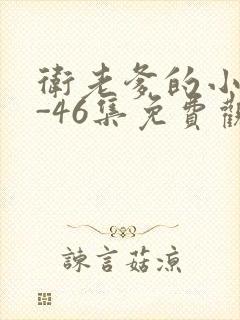 衛老爹的小
-46集免費觀
諫言菇涼